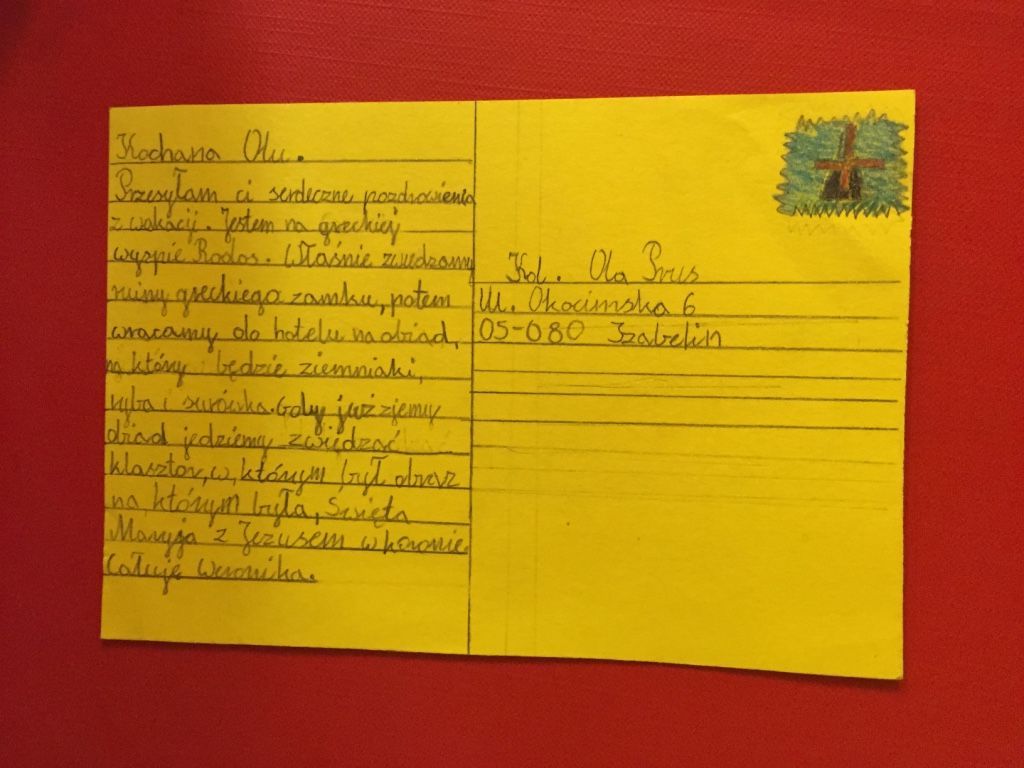 Kochana Olu.
Przesyłam ci serdeczne pozdrowienia
z wakacji. Jestem na greckiej
wyspie Rodos. Właśnie zwiedzamy
ruiny greckiego zamku, potem
wracamy do hotelu na obiad,
na który będzie ziemniaki,
ryba i surówka. Gdy już zjemy
obiad jedziemy zwiedzać
klasztor, w, którym był obraz
na, którym była, Święta
Maryja z Jezusem w koronie.
Całuję Weronika.
Kol. Ola Prus
Ul. Okocimska 6
05-080 Izabelin